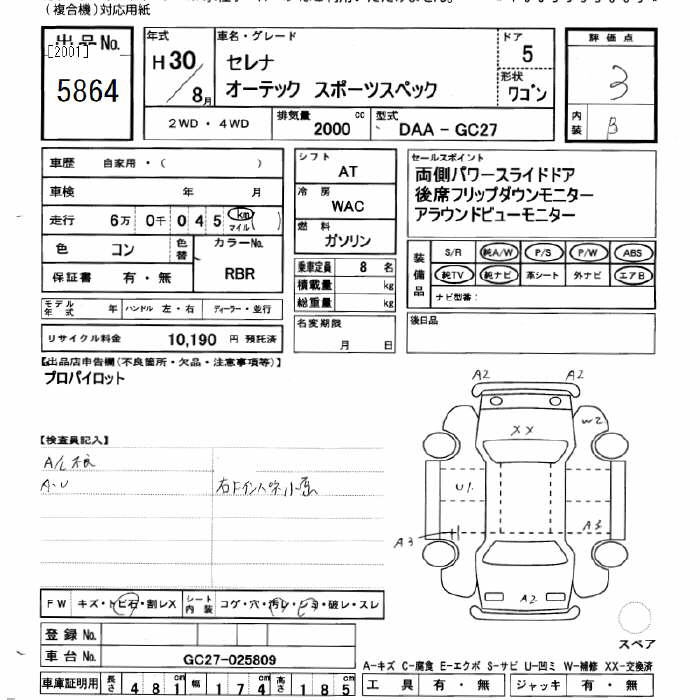 (複合機)対応用紙
出品No.
[2001]
5864
年式
H30/8月
車名・グレード
セレナ
オーテック スポーツスペック
ドア
5
形状
ワゴン
評価点
3
内装
B
2WD・4WD
排気量
2000 cc
型式
DAA-GC27
車歴 自家用・( )
車検 年 月
走行 6万 0千 0 4 5 km マイル ( )
色 コン
色替
カラーNo.
RBR
保証書 有・無
モデル年式 年
ハンドル 左・右
ディーラー・並行
リサイクル料金 10,190 円 預託済
シフト
AT
冷房
WAC
燃料
ガソリン
乗車定員 8 名
積載量 kg
総重量 kg
名変期限
月 日
セールスポイント
両側パワースライドドア
後席フリップダウンモニター
アラウンドビューモニター
装備品
S/R 純A/W P/S P/W ABS
純TV 純ナビ 革シート 外ナビ エアB
ナビ型番:
後日品
【出品店申告欄(不良箇所・欠品・注意事項等)】
プロパイロット
【検査員記入】
A・U
A2 A2
XX
W2
U1
A3
A3
A2
スペア
FW キズ・トビ石・割レX
シート内装 コゲ・穴・汚レ・シミ・破レ・スレ
登録No.
車台No. GC27-025809
車庫証明用 長さ 481cm 幅 174cm 高さ 185cm
A-キズ C-腐食 E-エクボ S-サビ U-凹ミ W-補修 XX-交換済
工具 有・無 ジャッキ 有・無